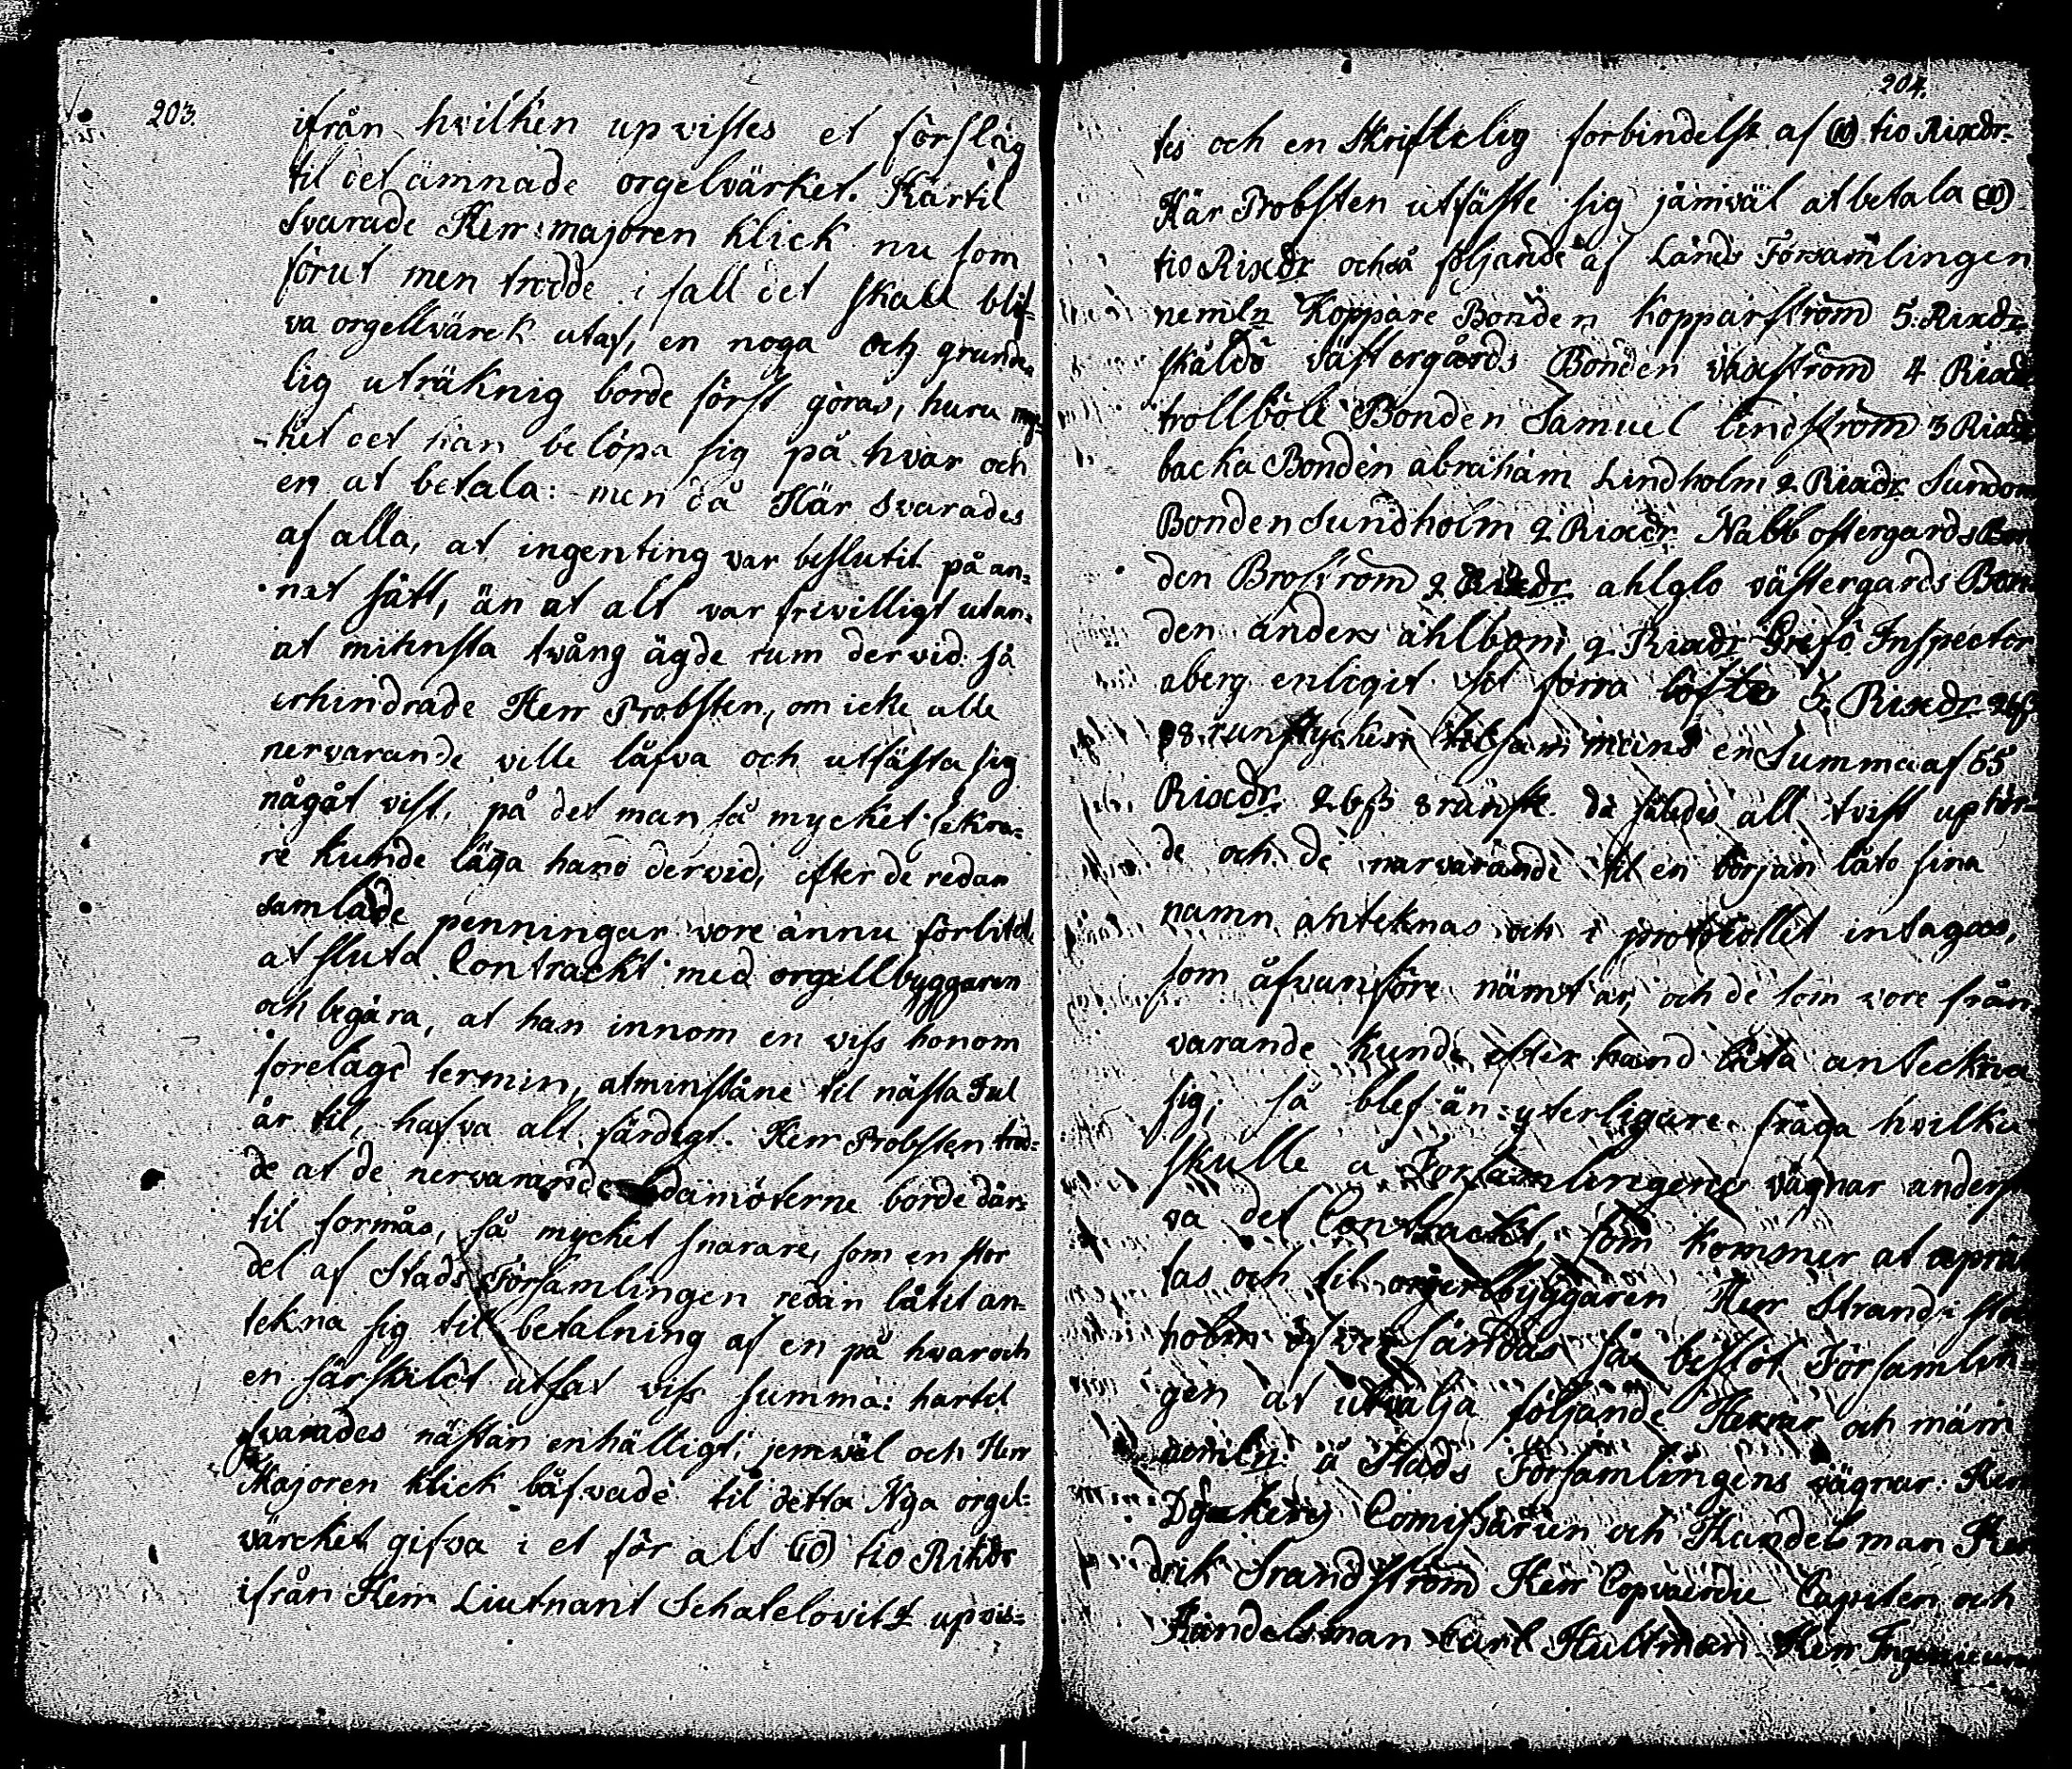 203.
ifrån hvilken upvistes et förslag
til det ämnade orgelvärket. Härtil
svarade Herr majoren Klick nu som
förut men trodde i fall det skall blif-
va orgellvärck utaf, en noga och grunde-
lig uträknig borde först göras, huru my-
ket det kan belöpa sig på hvar och
en at betala: men då Här svarades
af alla, at ingenting var beslutit på an-
nat sätt, än at alt var frivilligt utan
at minsta tvång ägde rum dervid: så
erhindrade Herr Probsten, om icke alle
nervarande ville låfva och utfästa sig
någåt vist, på det man så mycket sekra-
re kunde läga hand dervid, efter de redan
samlade penningar vore ännu förlitet
at sluta Contrackt med orgellbyggaren
och begära, at han innom en viss honom
förelagd termin, atminstone til nästa Jul
år til, hafva alt färdigt. Herr Probsten trod-
de at de nervarande ledamöterne borde där-
til formås, så mycket snarare, som en stor
del af Stads Församlingen redan låtit an-
tekna sig til betalning af en på hvar och
en särskildt utsat viss summa: hartil
svarades nästan enhälligt, jemwäl och Herr
Majoren Klick låfvade til detta Nya orgel-
värcket gifva i et för alt (10) tio Rikdr
ifrån Herr Liutnant Schatelovitz upvis-
204.
tes och en Skriftelig forbindelse af (10) tio Rixdr.
Här Probsten utfäste sig jämväl at betala (10)
tio Rixdr och så följande af Lands Församlingen
nemln Koppare Bonden Kopparström 5. Rixdr
skåldö västergårds Bonden Waxström 4 Rixdr
trollböle Bonden Samuel lindström 3 Rixdr
backa Bonden abraham Lindholm 2 Rixdr Sundom
Bonden Sundholm 2 Rixdr. Nabb ostergards Bon
den Broström 2 Rixdr ahlglo västergards Bon
den anders ahlbom 2 Rixdr Grefö Inspector
aberg enligit sit förra löfte 5 Rixdr 26 ß
8 runstycken tilsammans en Summa af 55
Rixdr. 26 ß 8 runst. då således all tvist uphör-
de och de narvarande til en början låto sina
namn anteknas och i protocollet intagas,
som åfvanföre nämt är, och de som vore från
varande kunde efter hand låta anteckna
sig; så blef än ytterligare fråga hvilka
skulle a Forsamlingens vägnar anderskri
va det Contrackt, som kommer at uprät
tas och til orgelbyggaren Herr Strand i stock
holm öfversändas så beslöt Församlin-
gen at utvälja följande Herrar och män
nemln: å Stads Församlingens vägnar: Herr
Dykeri Comissarien och Handelsman Hen
drik Srandström Herr Copvaerdie Capiten och
Handelsman Carl Hultman Herr Ingenieuren